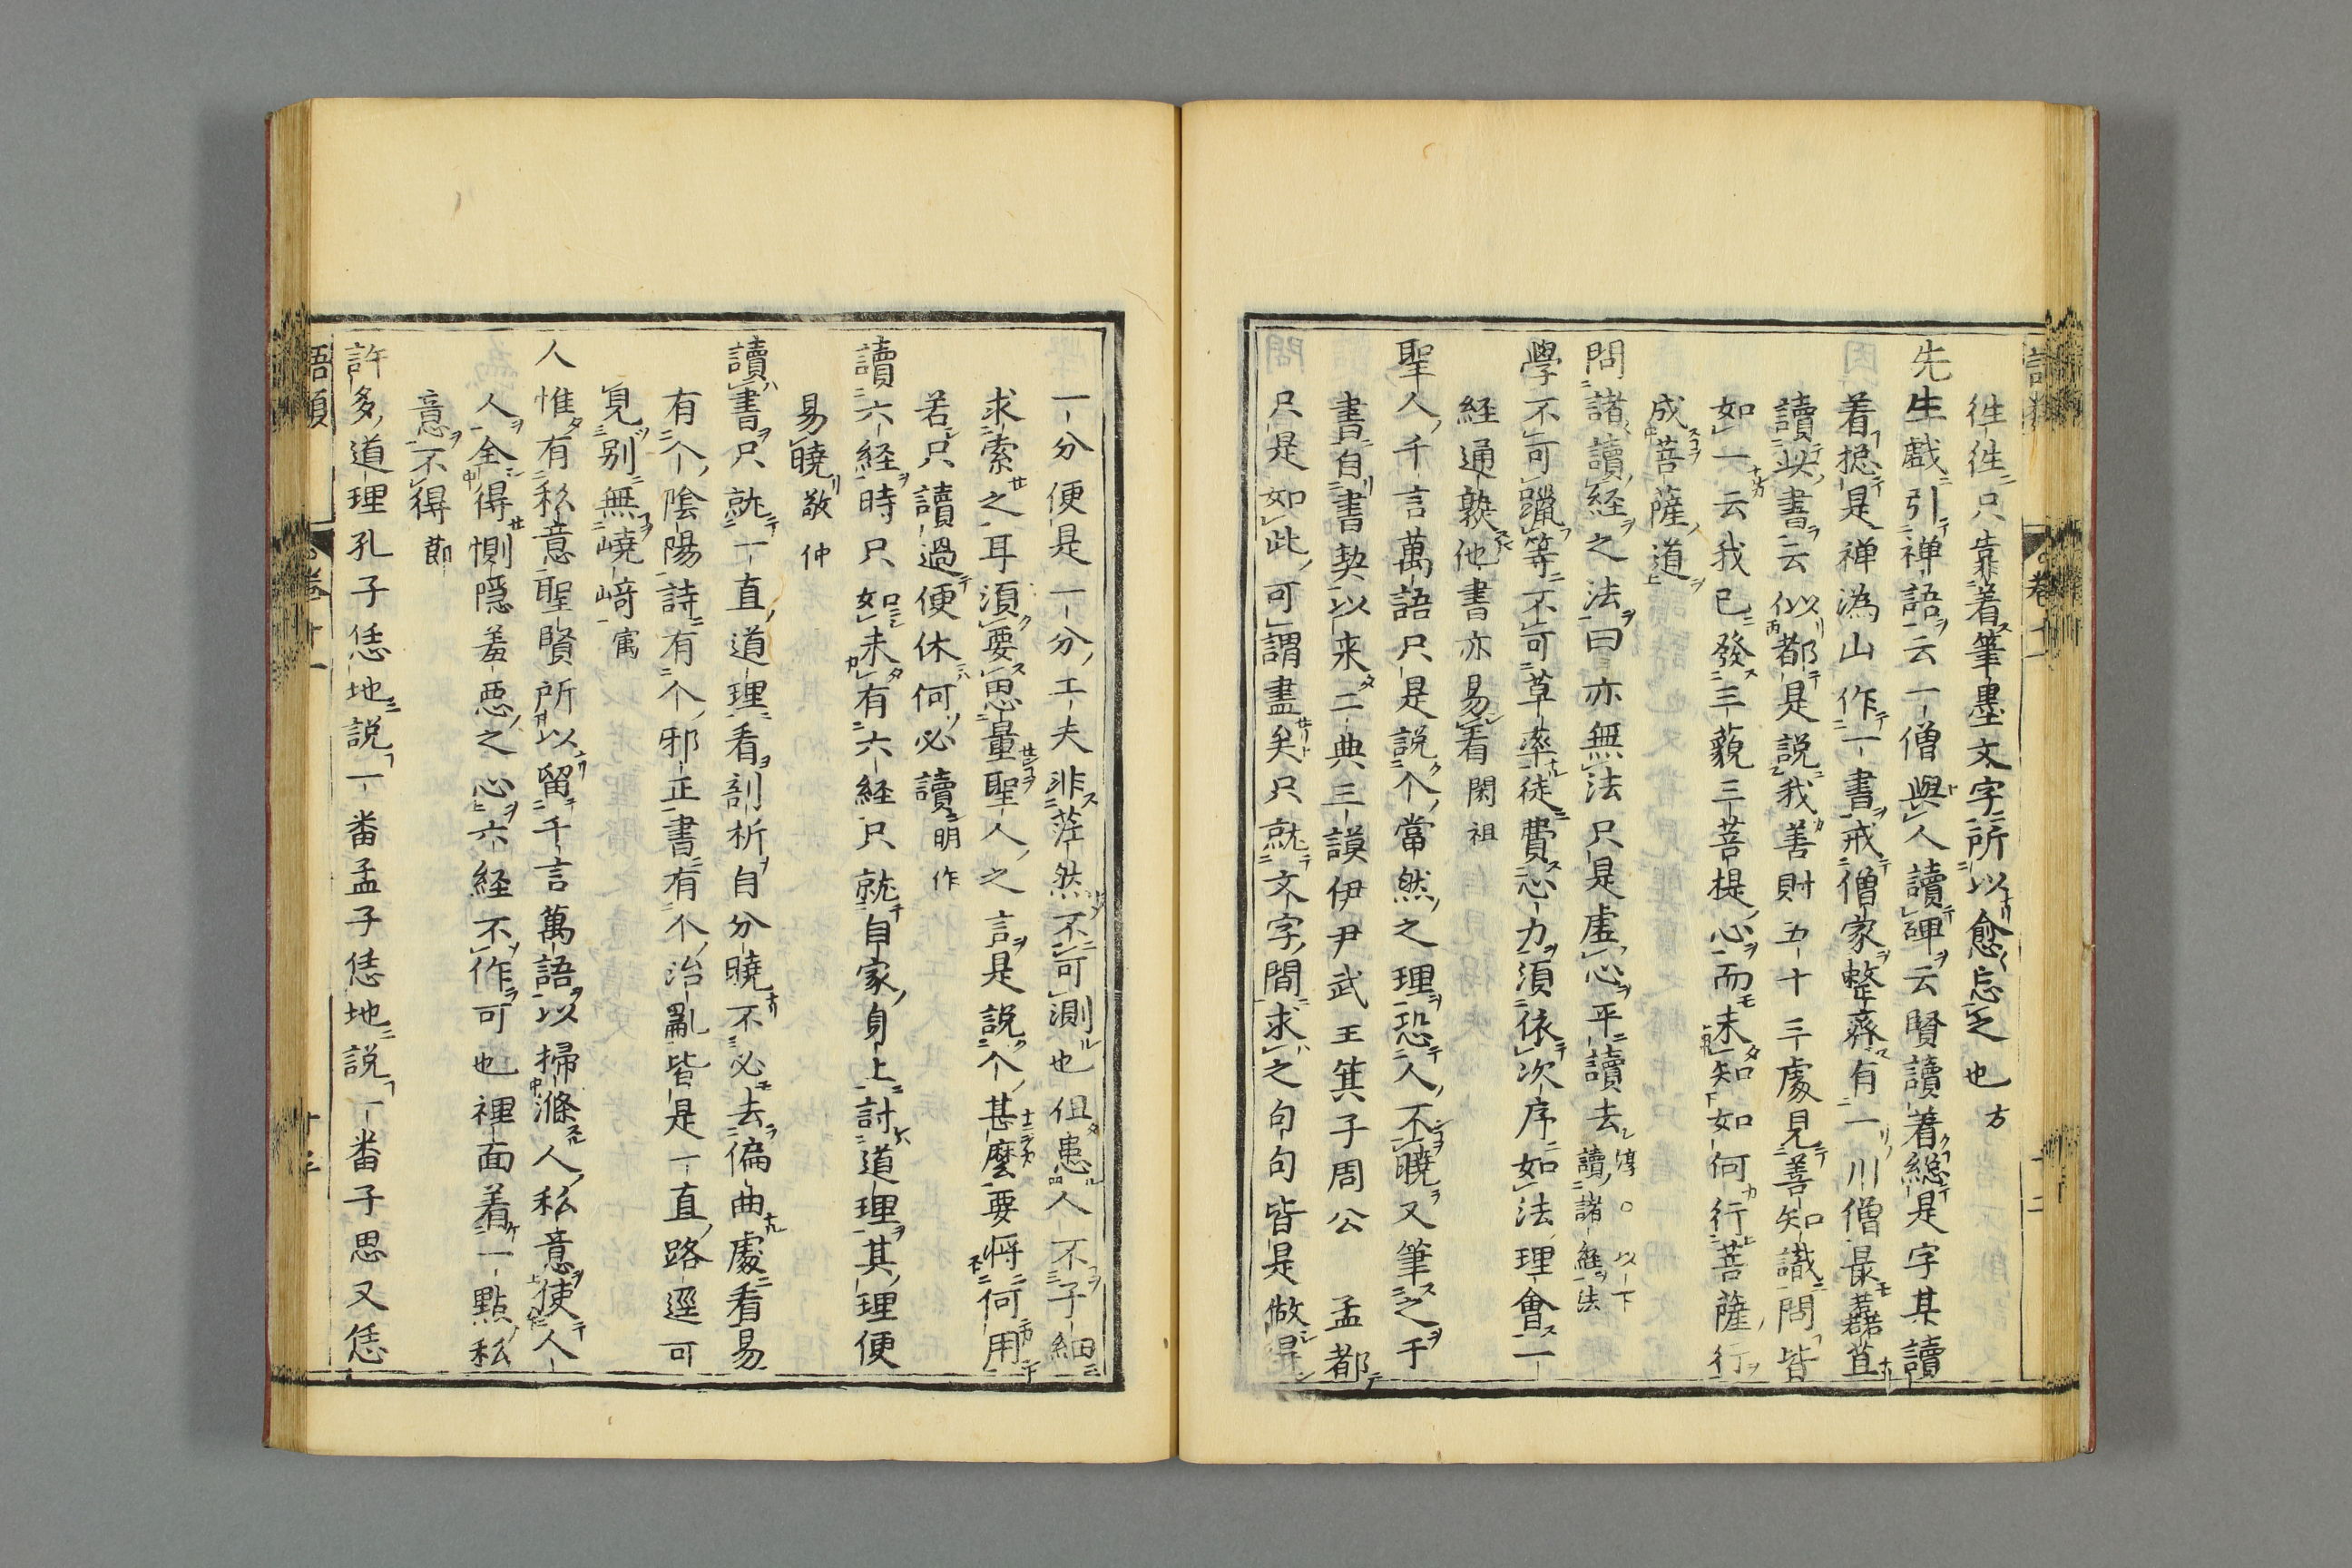 徃徃只靠着筆墨文字所以愈忘之也方
先生戱引禅語云一僧與人讀碑云賢讀着総是字某讀
着捴是禅溈山作一書戒僧家整齊有一川僧最䕢苴
讀此書云似都是説我善財五十三處見善知識問皆
如一云我已發三藐三菩提心而未知如何行菩薩行
成菩薩道
問諸讀経之法曰亦無法只是虛心平讀去淳○以下讀諸経法
學不可躐等不可草率徒費心力須依次序如法理會一
経通熟他書亦易看閎祖
聖人千言萬語只是説个當然之理恐人不曉又筆之于
書自書契以来二典三謨伊尹武王箕子周公孟都
只是如此可謂盡矣只就文字間求之句句皆是做得
一分便是一分工夫非茫然不可測也但患人不子細
求索之耳須要思量聖人之言是説个甚麼要将何用
若只讀過便休何必讀明作
讀六経時只如未有六経只就自家身上討道理其理便
易曉敬仲
讀書只就一直道理看剖析自分曉不必去偏曲處看易
有个陰陽詩有个邪正書有个治亂皆是一直路逕可
見别無嶢﨑㝢
人惟有私意聖賢所以留千言萬語以掃滌人私意使人
人全得惻隠羞惡之心六経不作可也裡面着一點私
意不得節
許多道理孔子恁地説一畨孟子恁地説一畨子思又恁
語類
卷十一